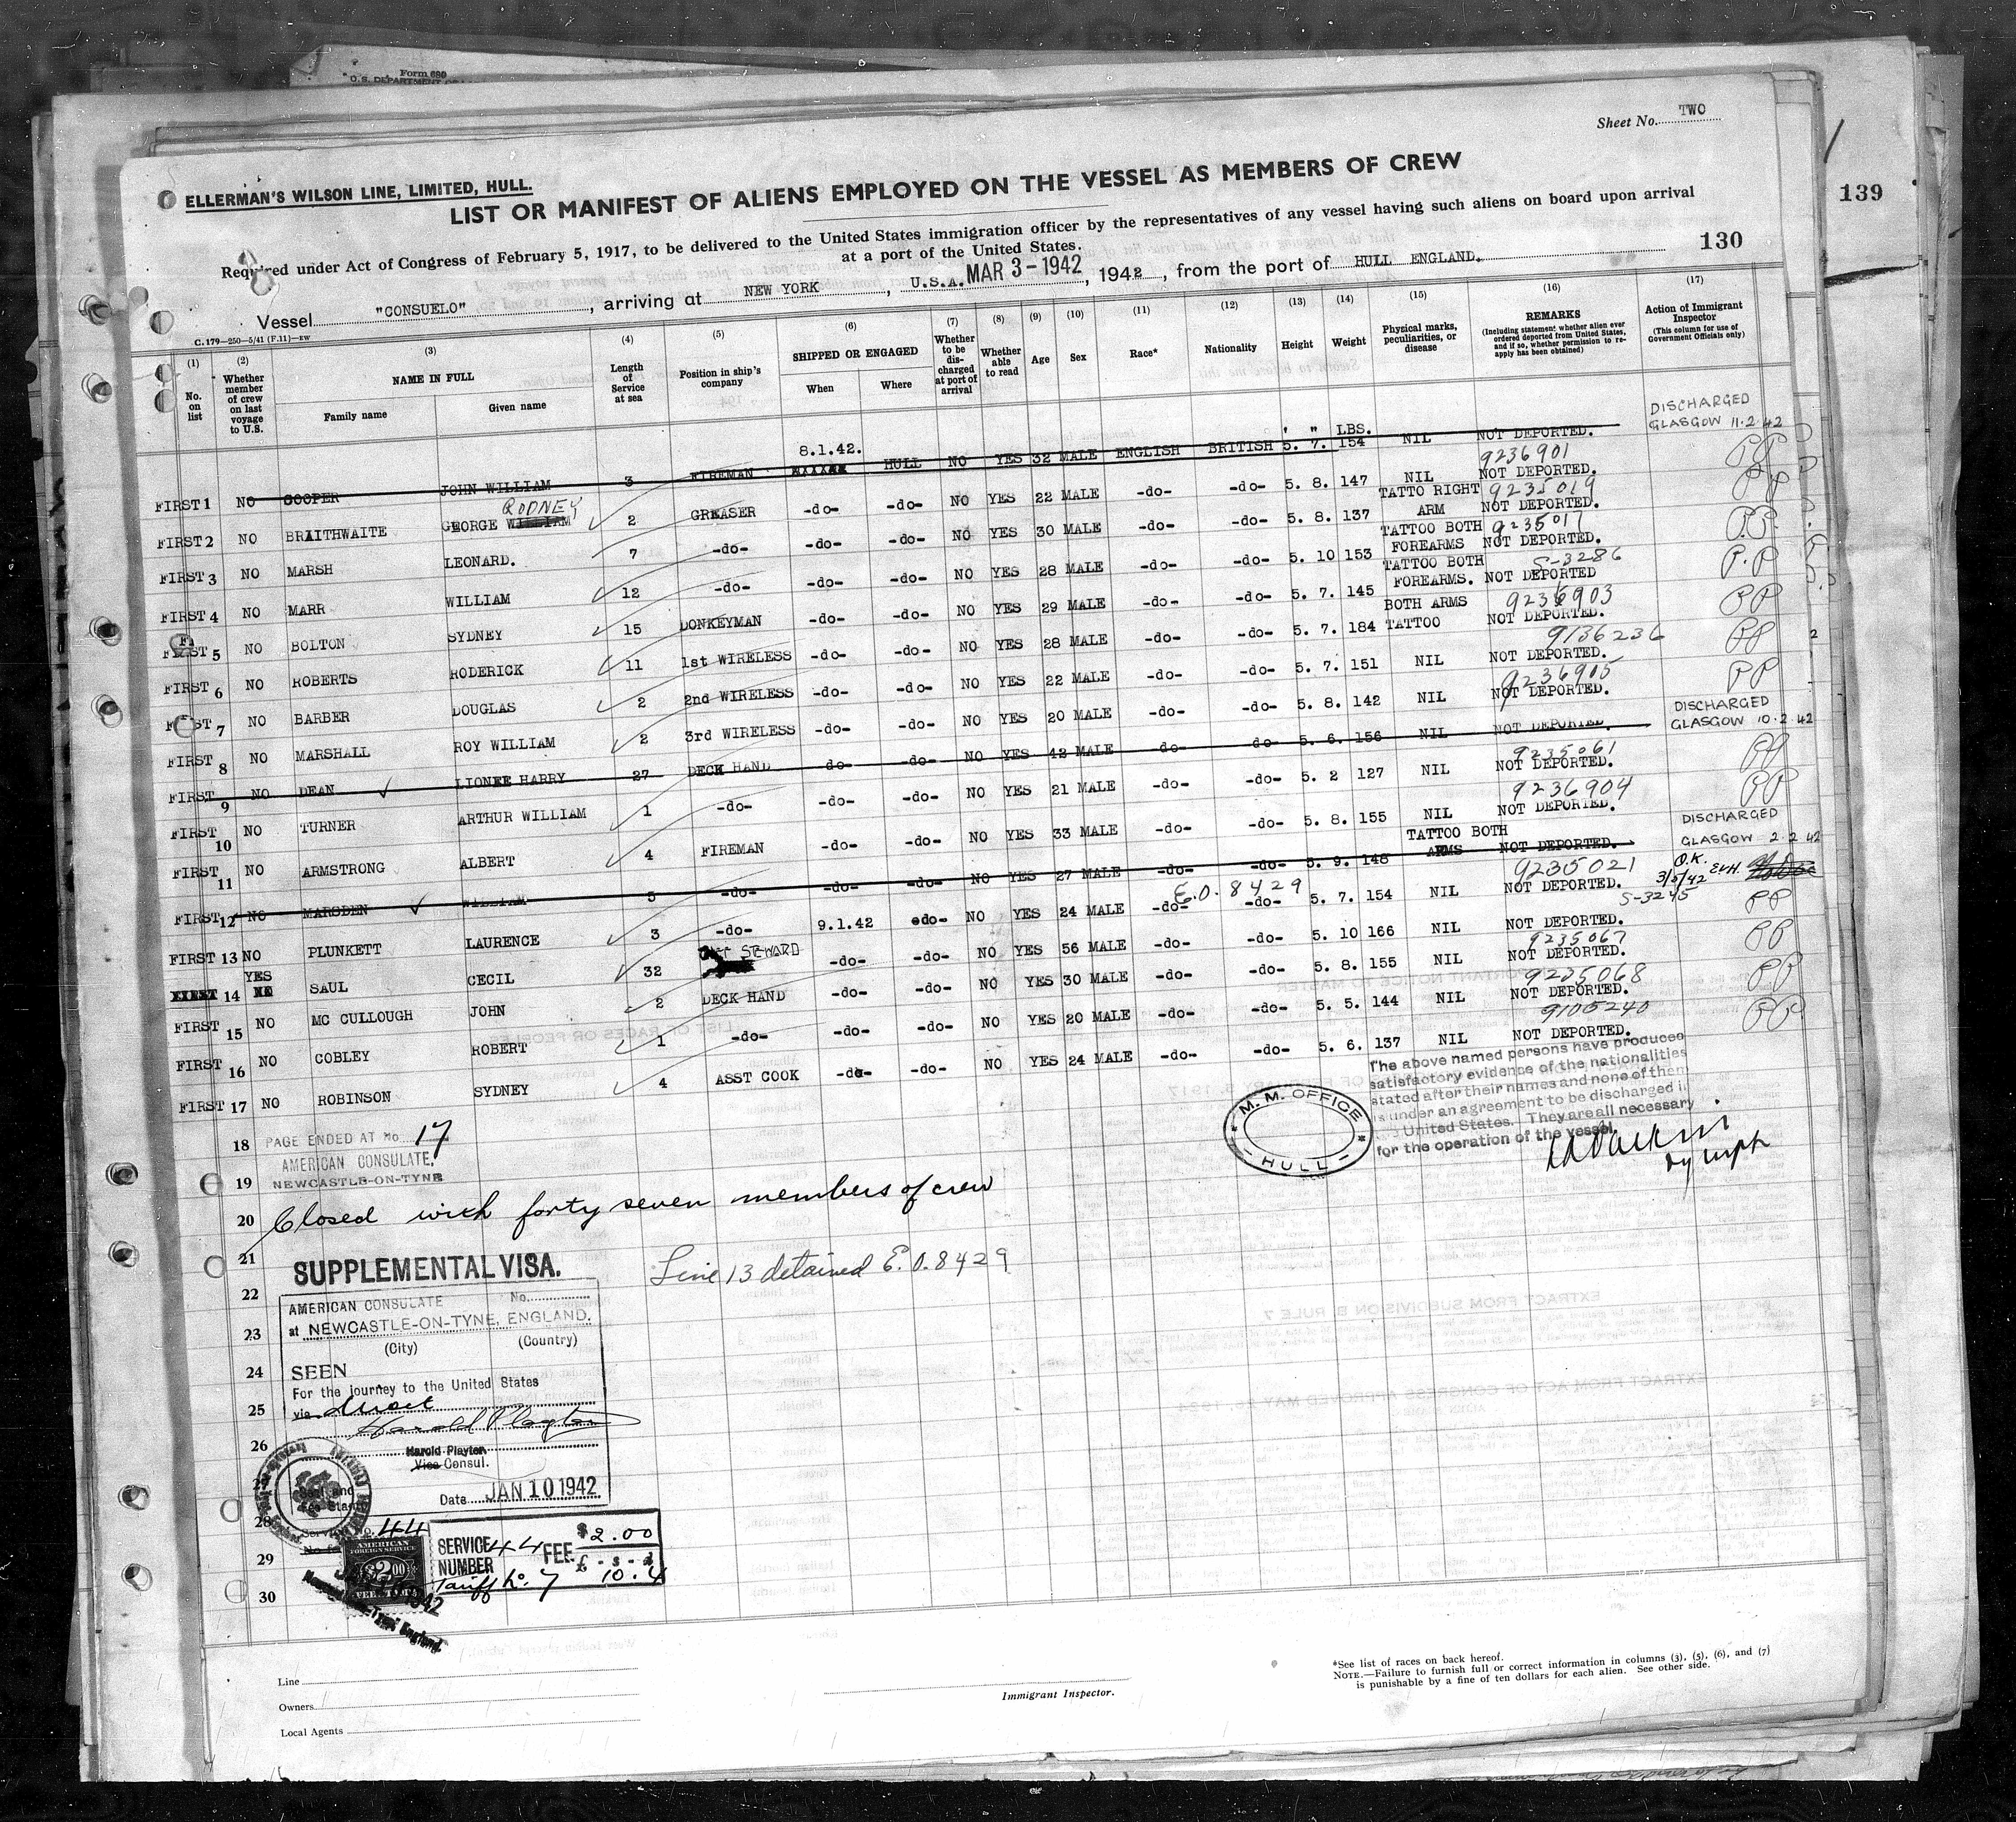 Form 680
U.S. DEPARTMENT
Sheet No. TWO
139
ELLERMAN'S WILSON LINE, LIMITED, HULL.
LIST OR MANIFEST OF ALIENS EMPLOYED ON THE VESSEL AS MEMBERS OF CREW
Required under Act of Congress of February 5, 1917, to be delivered to the United States immigration officer by the representatives of any vessel having such aliens on board upon arrival
at a port of the United States.
130
Vessel "CONSUELO", arriving at NEW YORK, U.S.A. MAR 3-1942, 1942, from the port of HULL ENGLAND.
C.179—250—5/41 (F.11)—EW
(1) (2) (3) (4) (5) (6) (7) (8) (9) (10) (11) (12) (13) (14) (15) (16) (17)
No. on list
Whether member of crew on last voyage to U.S.
NAME IN FULL
Family name
Given name
Length of Service at sea
Position in ship's company
SHIPPED OR ENGAGED
When
Where
Whether to be discharged at port of arrival
Whether able to read
Age
Sex
Race*
Nationality
Height
Weight
Physical marks, peculiarities, or disease
REMARKS
(Including statement whether alien ever ordered deported from United States, and if so, whether permission to reapply has been obtained)
Action of Immigrant Inspector
(This column for use of Government Officials only)
' " LBS.
FIRST 1 NO COOPER JOHN WILLIAM 3 FIREMAN 8.1.42. HULL NO YES 32 MALE ENGLISH BRITISH 5. 7. 154 NIL NOT DEPORTED. DISCHARGED GLASGOW 11.2.42
FIRST 2 NO BRAITHWAITE GEORGE WILLIAM RODNEY 2 GREASER -do- -do- NO YES 22 MALE -do- -do- 5. 8. 147 NIL 9236901 NOT DEPORTED. PP
FIRST 3 NO MARSH LEONARD. 7 -do- -do- -do- NO YES 30 MALE -do- -do- 5. 8. 137 TATTO RIGHT ARM 9235019 NOT DEPORTED. PP
FIRST 4 NO MARR WILLIAM 12 -do- -do- -do- NO YES 28 MALE -do- -do- 5. 10 153 TATTOO BOTH FOREARMS 9235017 NOT DEPORTED. P.P.
FIRST 5 NO BOLTON SYDNEY 15 DONKEYMAN -do- -do- NO YES 29 MALE -do- -do- 5. 7. 145 TATTOO BOTH FOREARMS. S-3286 NOT DEPORTED P.P
FIRST 6 NO ROBERTS RODERICK 11 1st WIRELESS -do- -do- NO YES 28 MALE -do- -do- 5. 7. 184 BOTH ARMS TATTOO 9236903 NOT DEPORTED. PP
FIRST 7 NO BARBER DOUGLAS 2 2nd WIRELESS -do- -do- NO YES 22 MALE -do- -do- 5. 7. 151 NIL 9136236 NOT DEPORTED. PP
FIRST 8 NO MARSHALL ROY WILLIAM 2 3rd WIRELESS -do- -do- NO YES 20 MALE -do- -do- 5. 8. 142 NIL 9236905 NOT DEPORTED. PP
FIRST 9 NO DEAN LIONEL HARRY 27 DECK HAND -do- -do- NO YES 42 MALE -do- -do- 5. 6. 156 NIL NOT DEPORTED. DISCHARGED GLASGOW 10.2.42
FIRST 10 NO TURNER ARTHUR WILLIAM 1 -do- -do- -do- NO YES 21 MALE -do- -do- 5. 2 127 NIL 9235061 NOT DEPORTED. PP
FIRST 11 NO ARMSTRONG ALBERT 4 FIREMAN -do- -do- NO YES 33 MALE -do- -do- 5. 8. 155 NIL 9236904 NOT DEPORTED. PP
FIRST 12 NO MARSDEN WILLIAM 5 -do- -do- -do- NO YES 27 MALE -do- -do- 5. 9. 148 TATTOO BOTH ARMS NOT DEPORTED. DISCHARGED GLASGOW 2.2.42
FIRST 13 NO PLUNKETT LAURENCE 3 -do- 9.1.42 -do- NO YES 24 MALE -do- E.O. 8429 -do- 5. 7. 154 NIL 9235021 NOT DEPORTED. O.K. 3/3/42
14 YES SAUL CECIL 32 SEWARD -do- -do- NO YES 56 MALE -do- -do- 5. 10 166 NIL S-3245 NOT DEPORTED. PP
FIRST 15 NO MC CULLOUGH JOHN 2 DECK HAND -do- -do- NO YES 30 MALE -do- -do- 5. 8. 155 NIL 9235067 NOT DEPORTED. PP
FIRST 16 NO COBLEY ROBERT 1 -do- -do- -do- NO YES 20 MALE -do- -do- 5. 5. 144 NIL 9235068 NOT DEPORTED. PP
FIRST 17 NO ROBINSON SYDNEY 4 ASST COOK -do- -do- NO YES 24 MALE -do- -do- 5. 6. 137 NIL 9105240 NOT DEPORTED. PP
The above named persons have produced
satisfactory evidence of the nationalities
stated after their names and none of them
is under an agreement to be discharged in
United States. They are all necessary
for the operation of the vessel.
M. M. OFFICE
HULL
18 PAGE ENDED AT No. 17
AMERICAN CONSULATE,
19 NEWCASTLE-ON-TYNE
20 Closed with forty seven members of crew
21
SUPPLEMENTAL VISA.
Line 13 detained E.O. 8429
22
AMERICAN CONSULATE No.
23 at NEWCASTLE-ON-TYNE, ENGLAND.
(City) (Country)
24 SEEN
For the journey to the United States
25 via direct
Harold Playter
26 Harold Playter
Vice Consul.
27
Date JAN 10 1942
28 Service No. 44
SERVICE NUMBER 44 FEE $2.00
£ - s - d
10.4
Tariff No. 7
29
AMERICAN
FOREIGN SERVICE
$2.00
30
Line
Owners
Local Agents
Immigrant Inspector.
*See list of races on back hereof.
NOTE.—Failure to furnish full or correct information in columns (3), (5), (6), and (7)
is punishable by a fine of ten dollars for each alien. See other side.